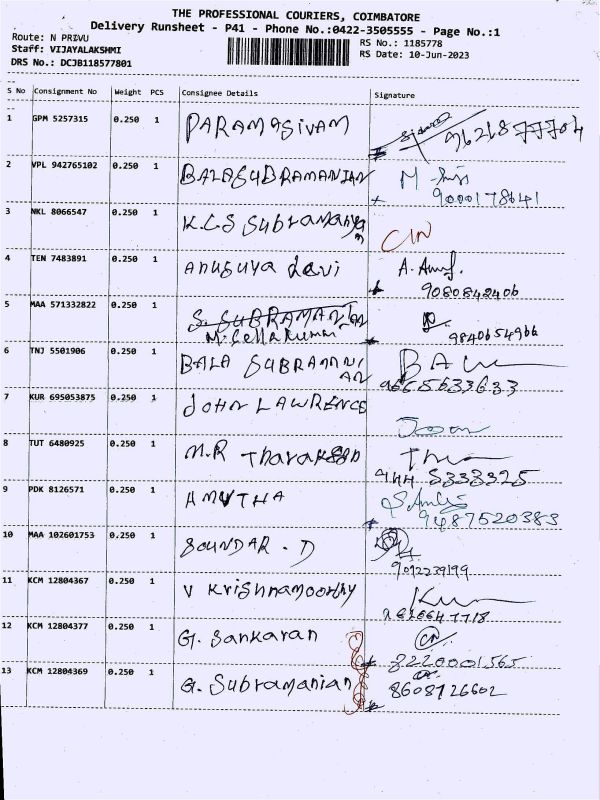 THE PROFESSIONAL COURIERS, COIMBATORE
Delivery Runsheet - P41 - Phone No.:0422-3505555 - Page No.:1
Route: N PRIVU
RS No.: 1185778
Staff: VIJAYALAKSHMI
RS Date: 10-Jun-2023
DRS No.: DCJB118577801
S No Consignment No Weight PCS Consignee Details Signature
1 GPM 5257315 0.250 1 PARAMASIVAM
2 VPL 942765102 0.250 1 BALASUBRAMANIAN
9000178641
3 NKL 8066547 0.250 1 K.C.S Subramanyan
4 TEN 7483891 0.250 1 Anusuya devi
9080842406
5 MAA 571332822 0.250 1 S. SUBRAMANIAN
M. Sella kumar 9840654966
6 TNJ 5501906 0.250 1 BALA SUBRAMNI
AN 9665633633
7 KUR 695053875 0.250 1 JOHN LAWRENCE
8 TUT 6480925 0.250 1 M.R Tharakesh
944 5333325
9 PDK 8126571 0.250 1 AMUTHA
9487520383
10 MAA 102601753 0.250 1 SOUNDAR . D
9092239199
11 KCM 12804367 0.250 1 V Krishnamoorthy
12 KCM 12804377 0.250 1 G. Sankaran
8220001565
13 KCM 12804369 0.250 1 G. Subramanian
8608726602